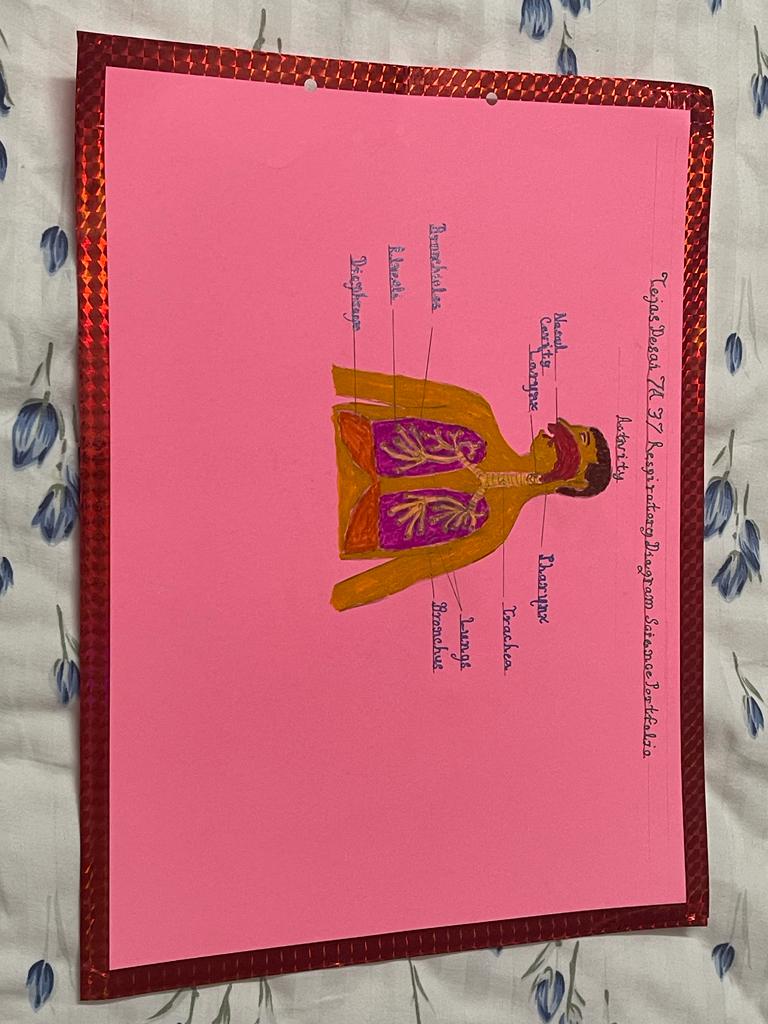 Tejas Desai 7A 37 Respiratory Diagram Science Portfolio
Activity
Nasal
Cavity
Larynx
Pharynx
Trachea
Lungs
Bronchioles
Bronchus
Alveoli
Diaphragm